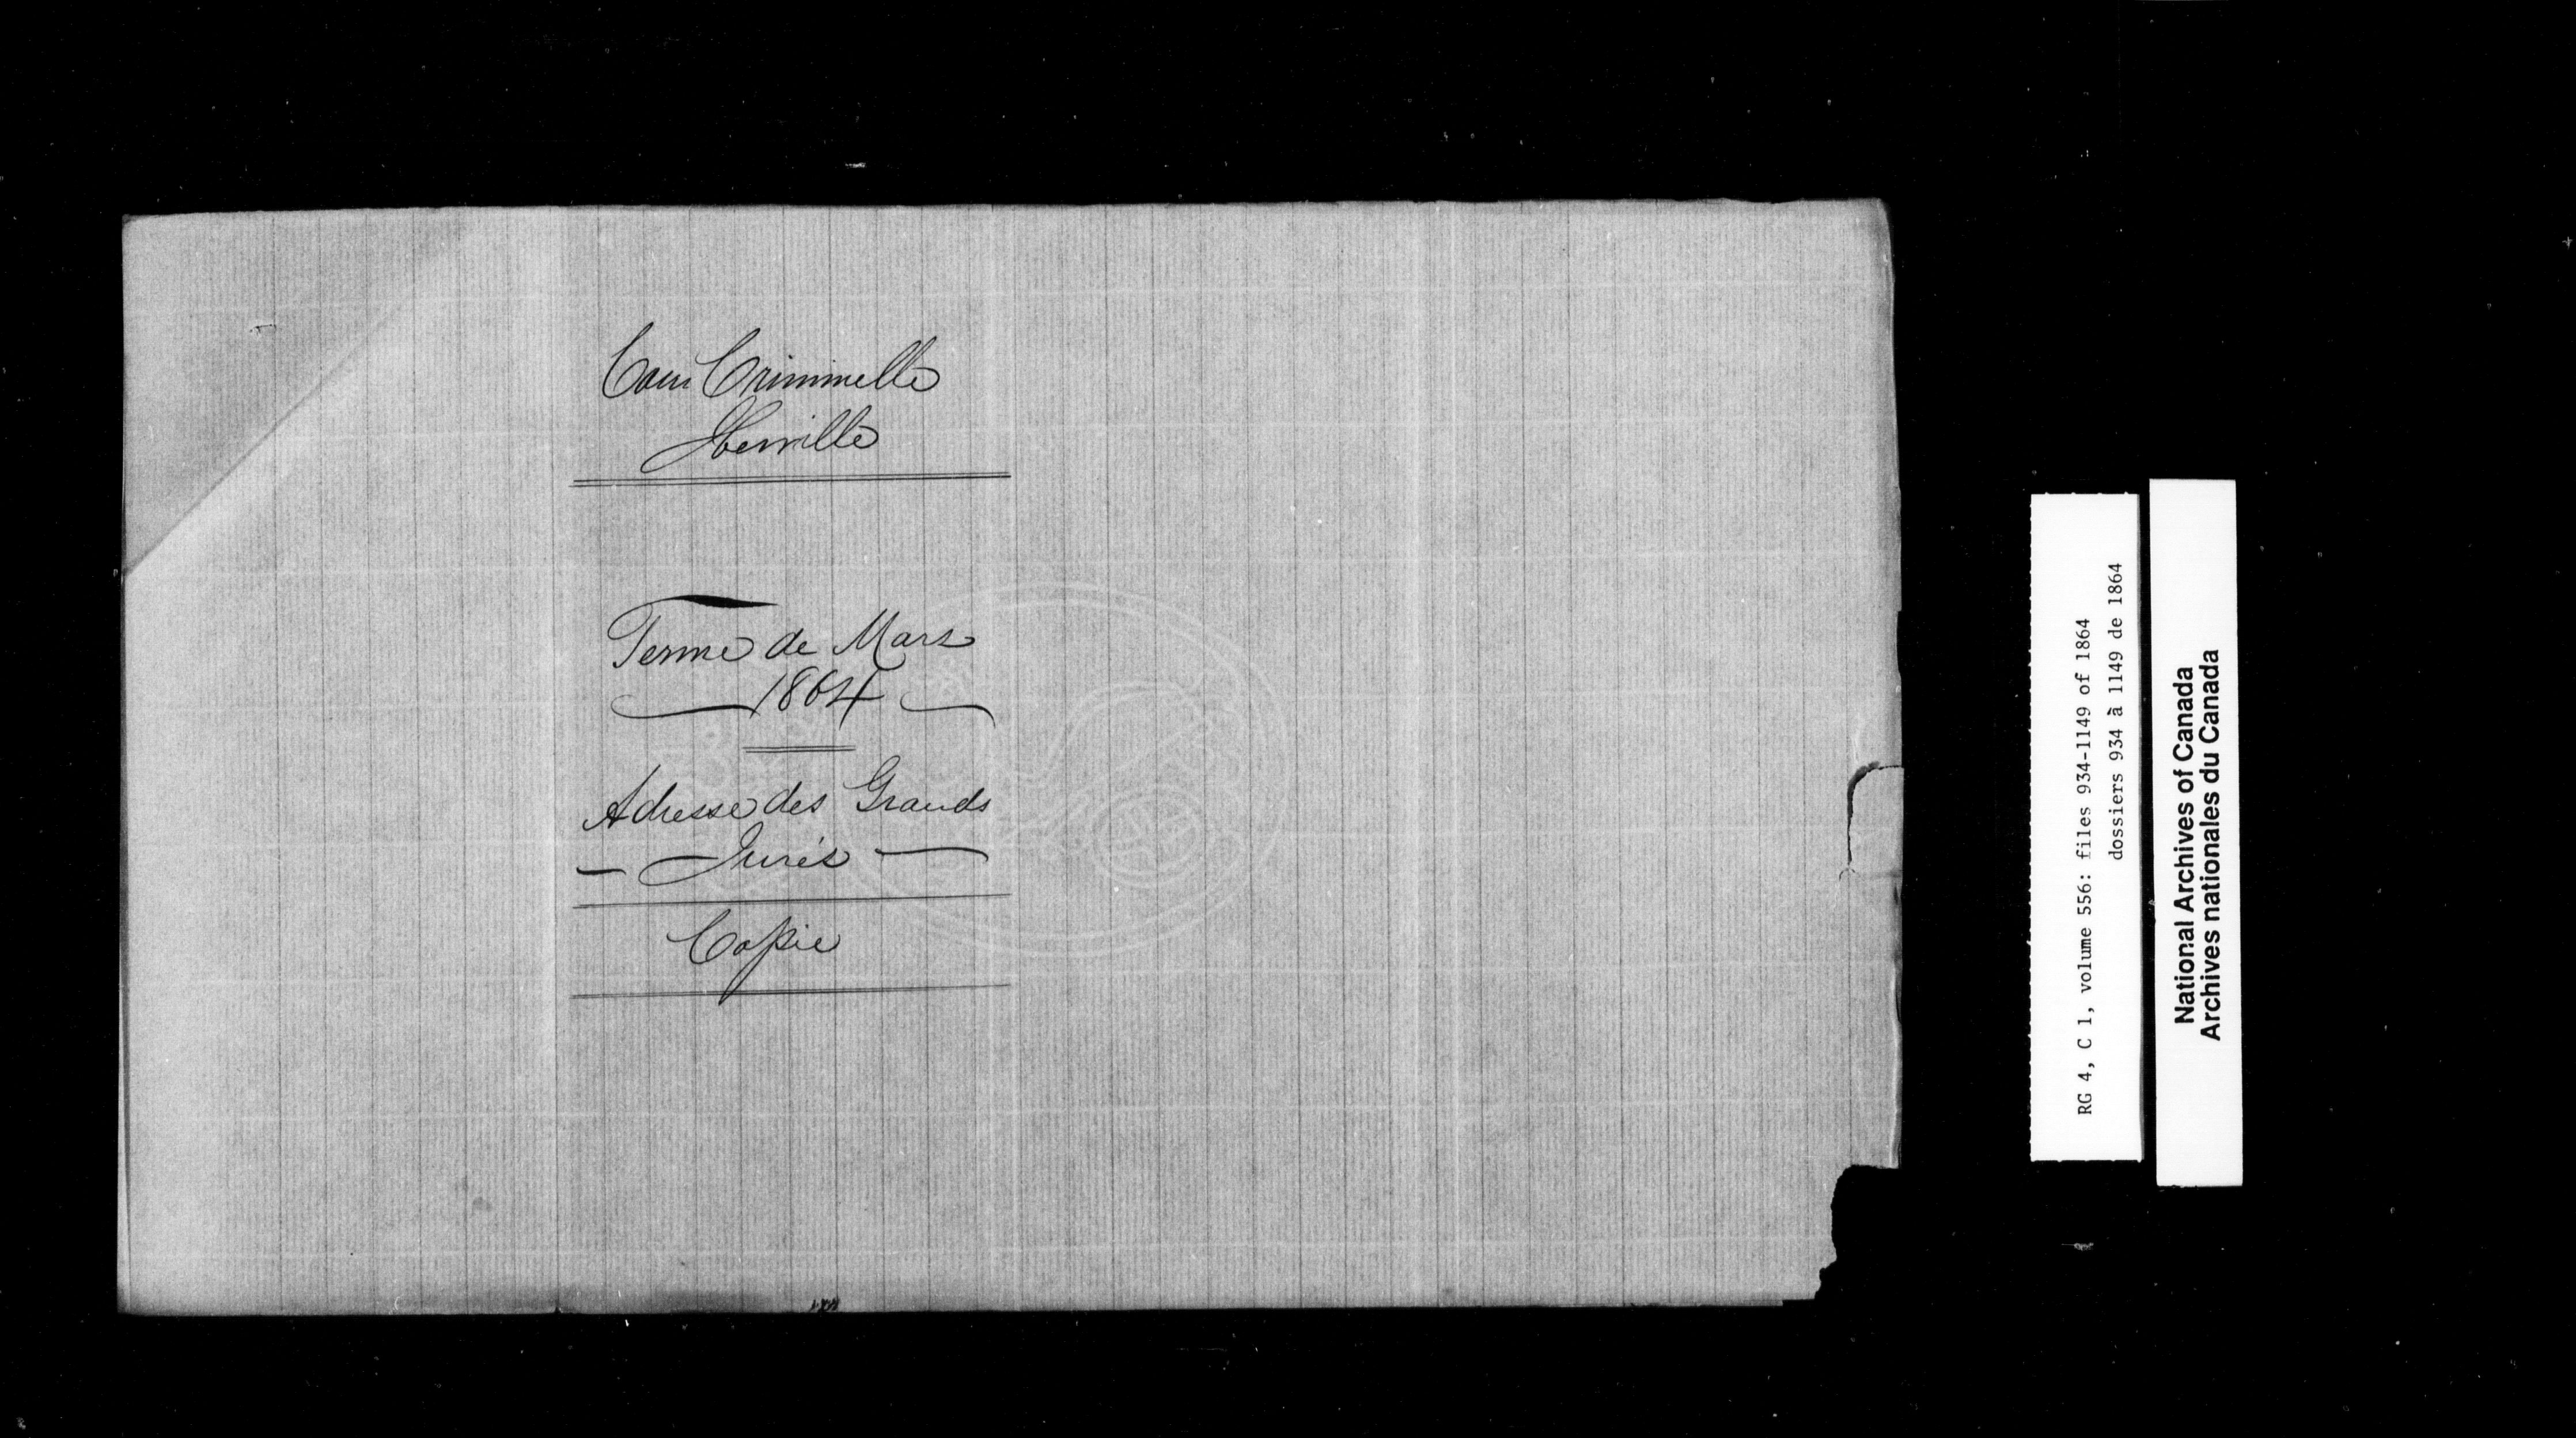 Cour Criminelle
Iberville
Terme de Mars
1864
Adresse des Grands
Jurés
Copie
RG 4, C 1, volume 556: files 934-1149 of 1864
dossiers 934 à 1149 de 1864
National Archives of Canada
Archives nationales du Canada